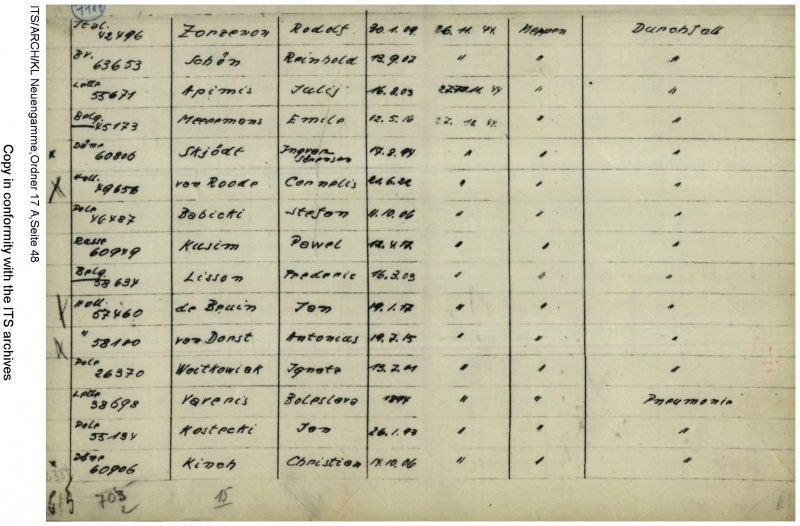 ITS/ARCH/KL Neuengamme,Ordner 17 A,Seite 48
Copy in conformity with the ITS archives
Ital. 42496 Zorzenon Rodolf 30.1.09. 26.11.44. Meppen Durchfall
Br. 63653 Schön Reinhold 13.9.07 " " "
Lette 55671 Apinis Julis 16.8.03 44 " "
Belg. 45173 Meeremans Emile 12.5.16 27. 44. " "
x Däne 60806 Skjödt Ingvar Sörensen " " "
X Holl. van Roode Cornelis 21.6.22 " " "
Pole 46487 Babicki Stefan 11.10.06 " " "
Russe 60949 Kusim Pawel " " "
Belg. 58634 Lisson Frederic 16.3.03 " " "
Holl. 57460 de Bruin Jan 19.1.17 " " "
X " 58180 van Donst Antonius 19.7.15 " " "
Pole 26370 Woitkowiak Ignatz 13.7.01 " " "
Lette 38698 Varenis Boleslavs 1894 " " Pneumonie
Pole 55134 Kostecki Jan " " "
x Däne 60906 Kinch Christian 14.10.06 " " "
703 15
2